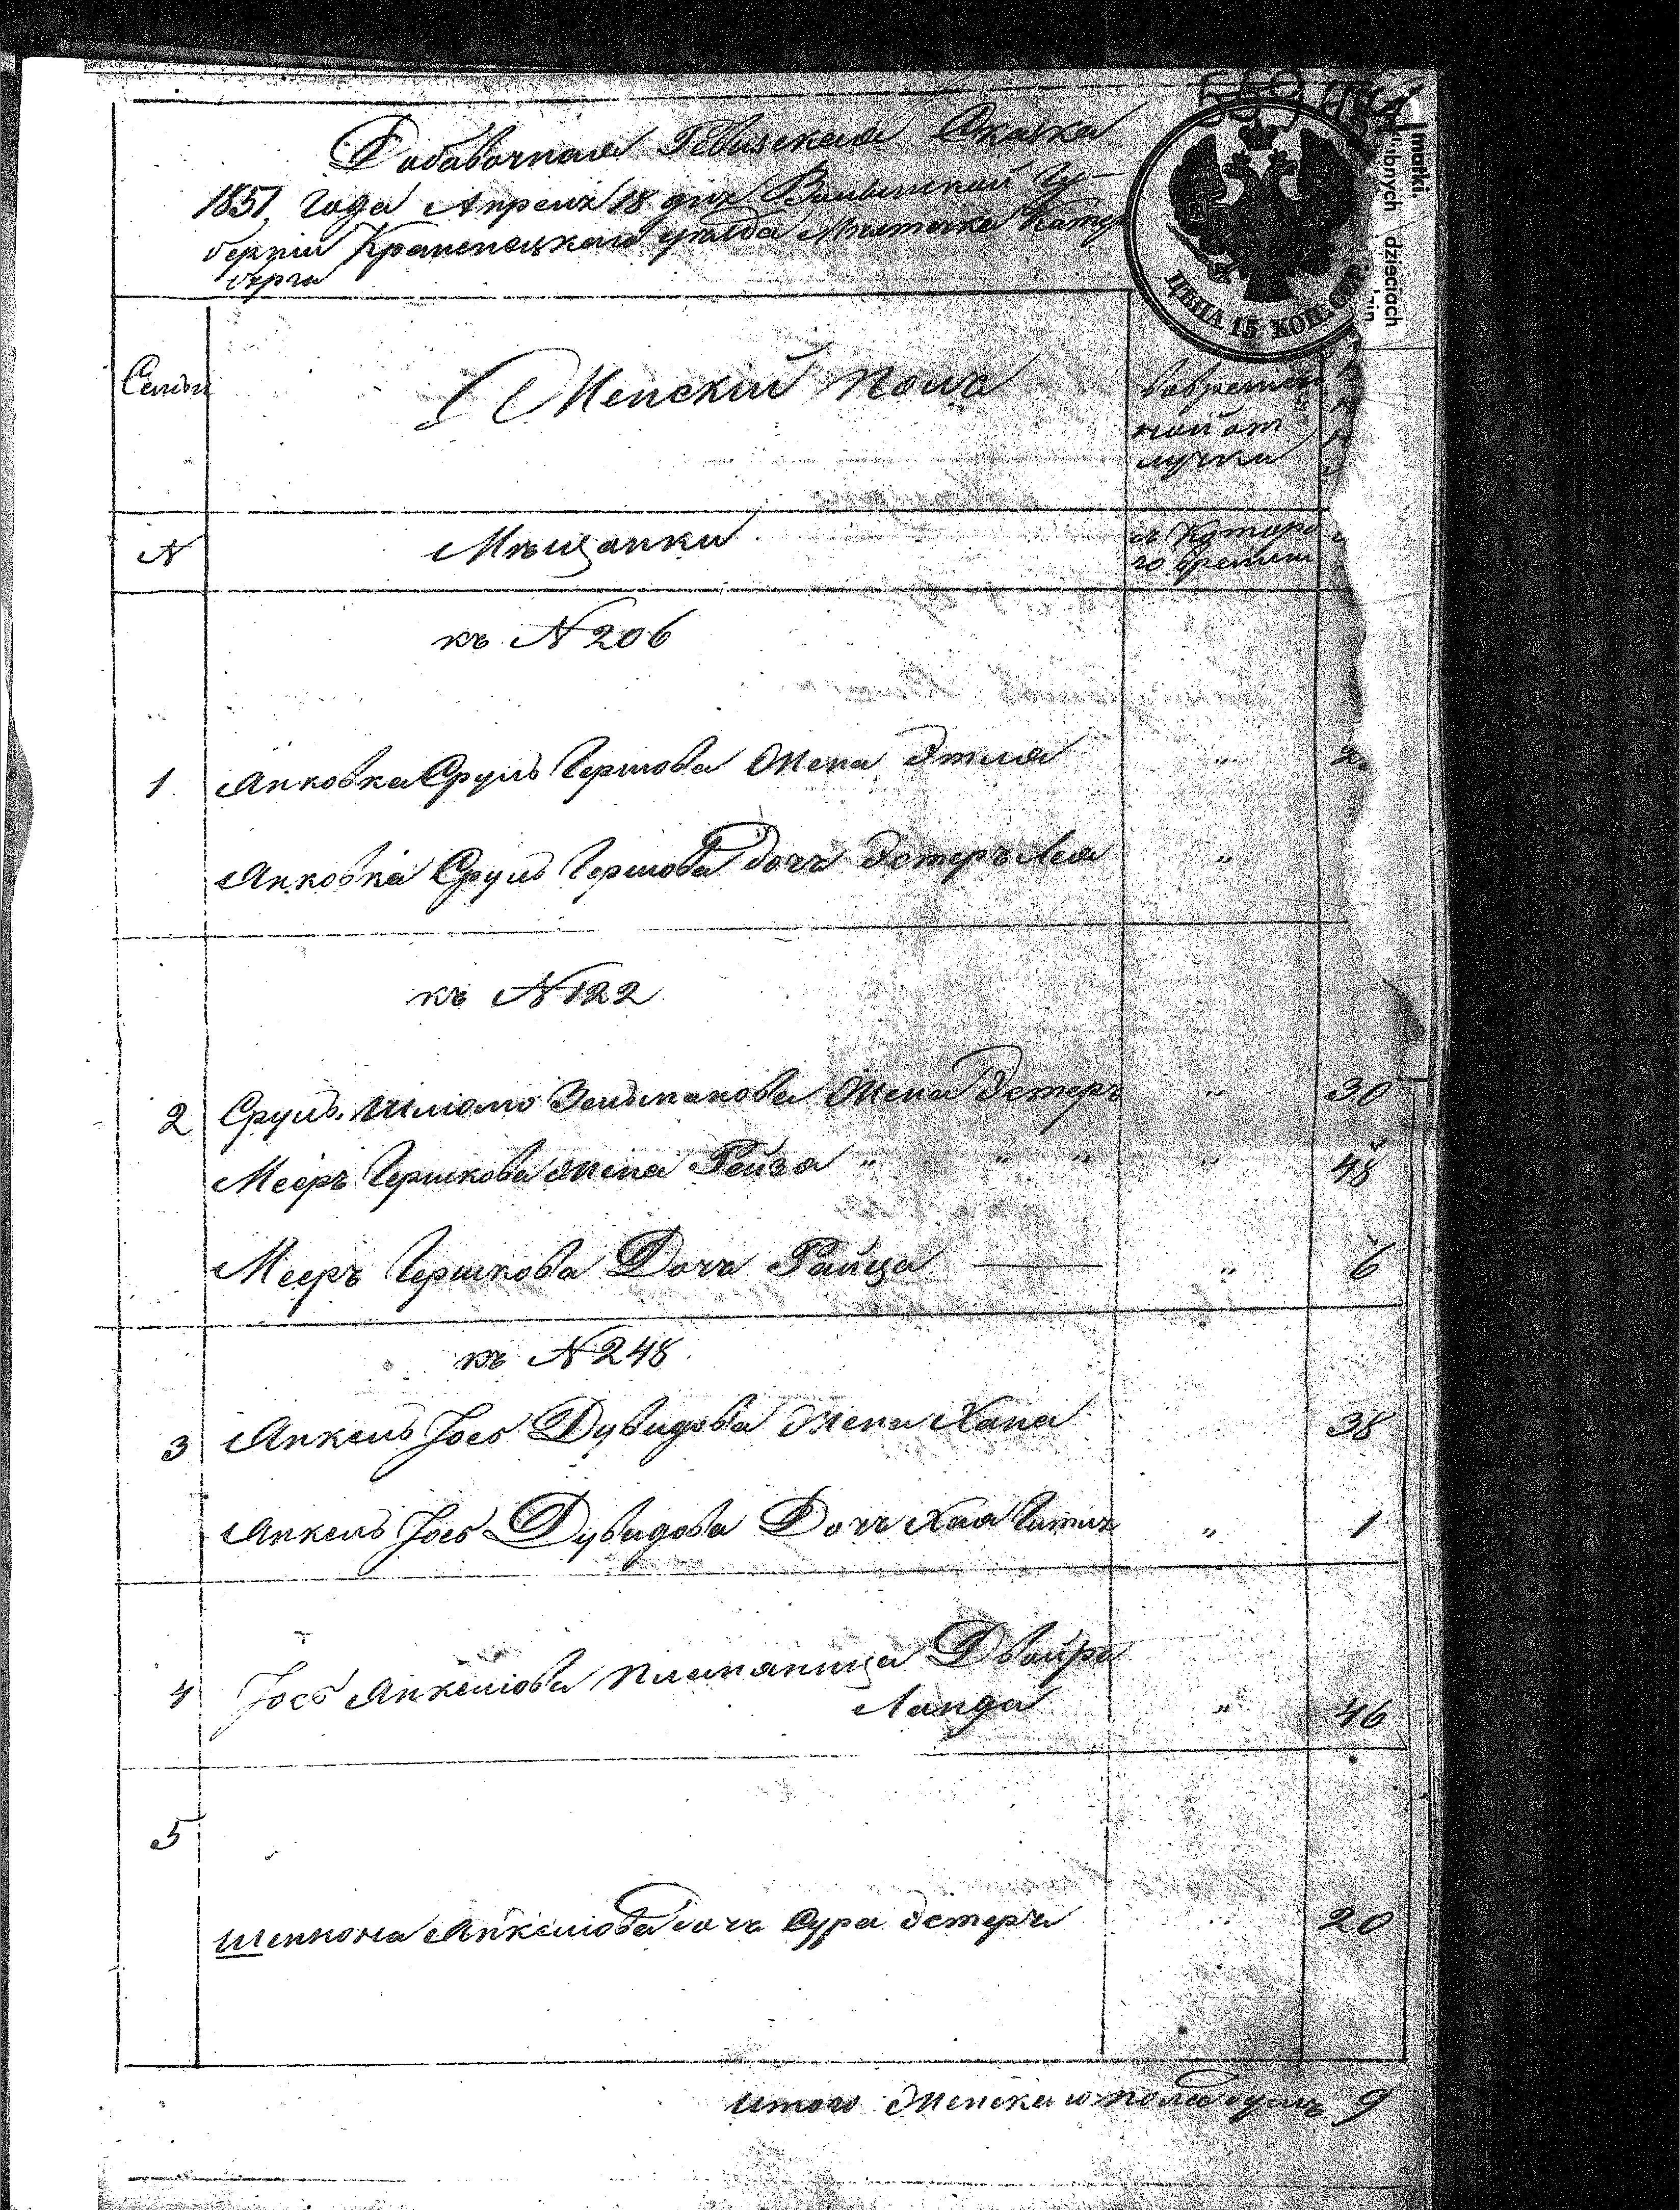 Добавочная Ревизская Сказка
1851 года Апреля 18 дня Волынской Гу-
берніи Кременецкаго уезда Местечка Катер
бурга
ЦѢНА 15 КОП. СЕР.
matki.
dzieciach
Семьи
Женскій полъ
Во времен
ной от
лучке
N
Мѣщанки
съ Которо
го времени
къ N 206
1. Янковка Сруль Гершова Жена Этля "
Янковка Сруль Гершова Дочь Эстеръ Лея "
къ N 122
2 Сруль Шлиомо Зельманова Жена Эстеръ " 30
Мееръ Гершкова Жена Рейза " " " " 48
Мееръ Гершкова Дочь Раица " 6
къ N 248
3 Янкель Іосъ Дувидова Жена Хана 38
Янкель Іосъ Дувидова Дочь Хая Гитля " 1
4 Іосъ Янкелиова племяница Двойра
Ланда " 46
5
Янкелиова дочь Сура Эстеръ 20
Итого Женскаго пола душъ 9